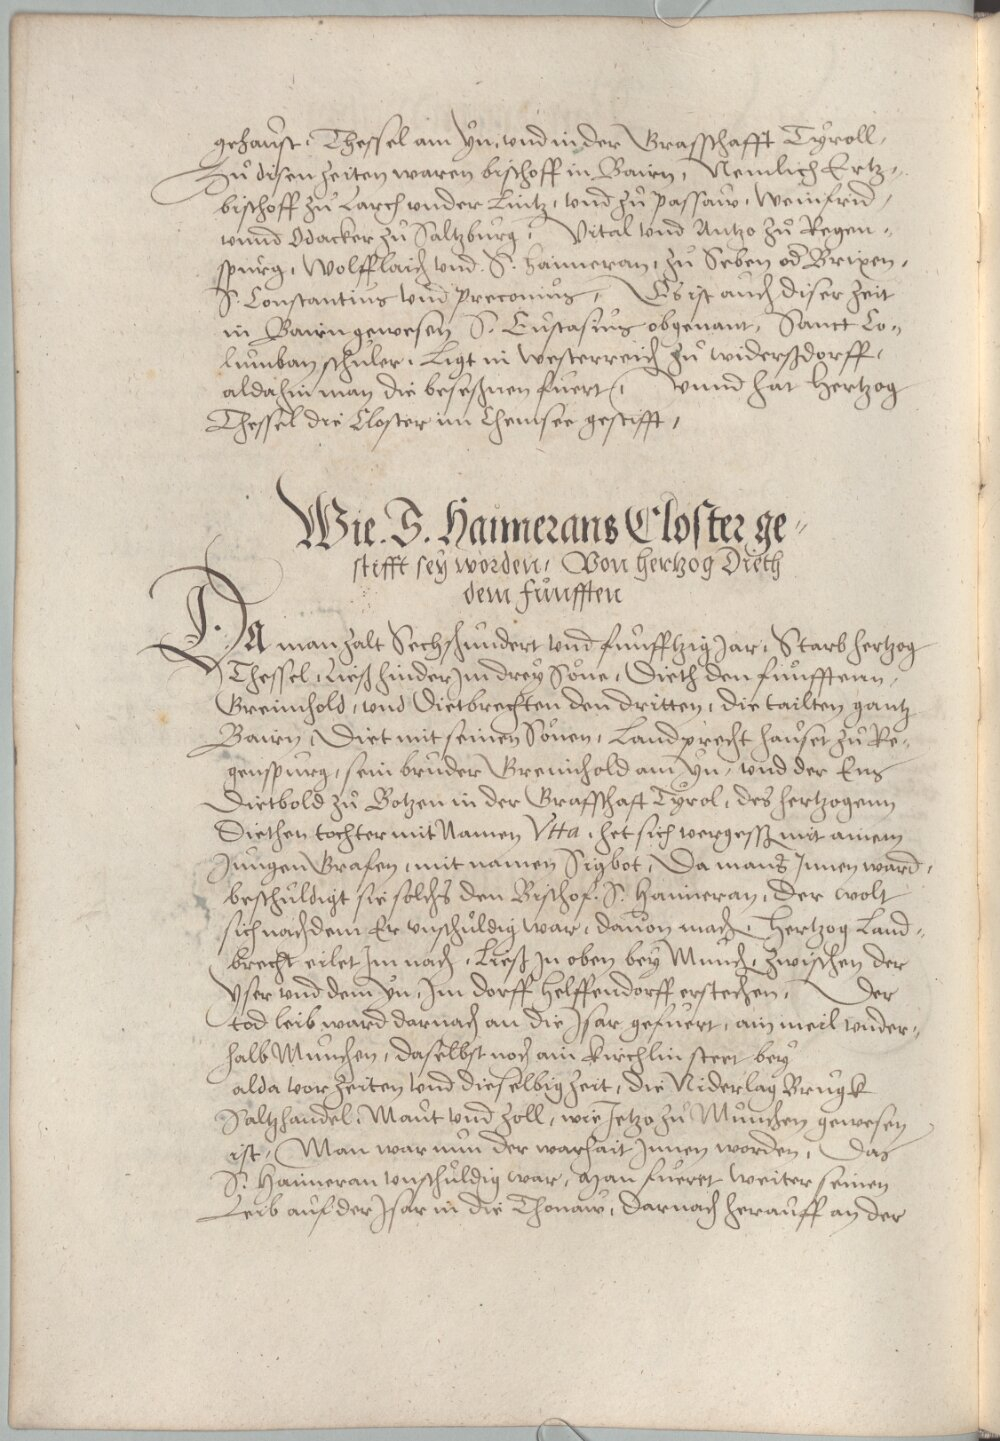 gehaust, Thessel am Yn, und in der Graffschafft Tyroll,
Zů disen zeiten waren bischoff in Bairn, Nemlich Ertz-
bischoff zů Larch under Lintz, und zů Passaw, Weinfrid,
unnd Odacker zů Saltzburg, Vital und Antzo zů Regen-
spurg, Wolfflaich und S. Haimeran, zů Seben od Brixen,
S. Constantius und preconius, Es ist auch diser zeit
in Bairn gewesen S. Eustasius obgenant, Sanct Co-
lumban schuler, Ligt in Westerreich zů widerßdorff,
aldahin man die beseßnen fuert, Unnd hat Hertzog
Thessel die Closter im Chemsee gestifft,
Wie S. Haimerans Closter ge-
stifft sey worden, Von hertzog Dieth
dem fůnfften
DA man zalt Sechshundert und funfftzig Jar, Starb hertzog
Thessel, Ließ hinder Jm drey Sone, Dieth den funfftenn,
Greimhold, und Dietbrechten den dritten, die tailten gantz
Bairn, Diet mit seinen Sonen, Landprecht hauset zů Re-
genspurg, sein bruder Greimhold am Yn, und der Ens
Dietbold zů Botzen in der Graffschaft Tyrol, des hertzogenn
Diethen tochter mit Namen Utta, het sich vergessz mit ainem
Jungen Grafen, mit namen Sigbot, Da mans Jnnen ward,
beschuldigt sie solchs den Bischof S. Haimeran, der wolt
sich nach dem Er unschuldig war, davon mach, Hertzog Land-
brecht eilet Jm nach, Ließ Jn oben bey Münch, zwischen der
Yser und dem Yn, Jm dorff helffendorff erstechen, Der
tod leib ward darnach an die Jsar gefuert, ain meil under-
halb München, daselbst noch ain kirchlin steet bey
alda vor zeiten und dieselbig zeit, die Niderlag Brugk
Saltzhandel, Maut und Zoll, wie Jetzo zů München gewesen
ist, Man war nun der warhait Jnnen worden, Das
S. Haimeran unschuldig war, Man fueret weiter seinen
Leib auf der Jsar in die Thonaw, darnach herauff an der